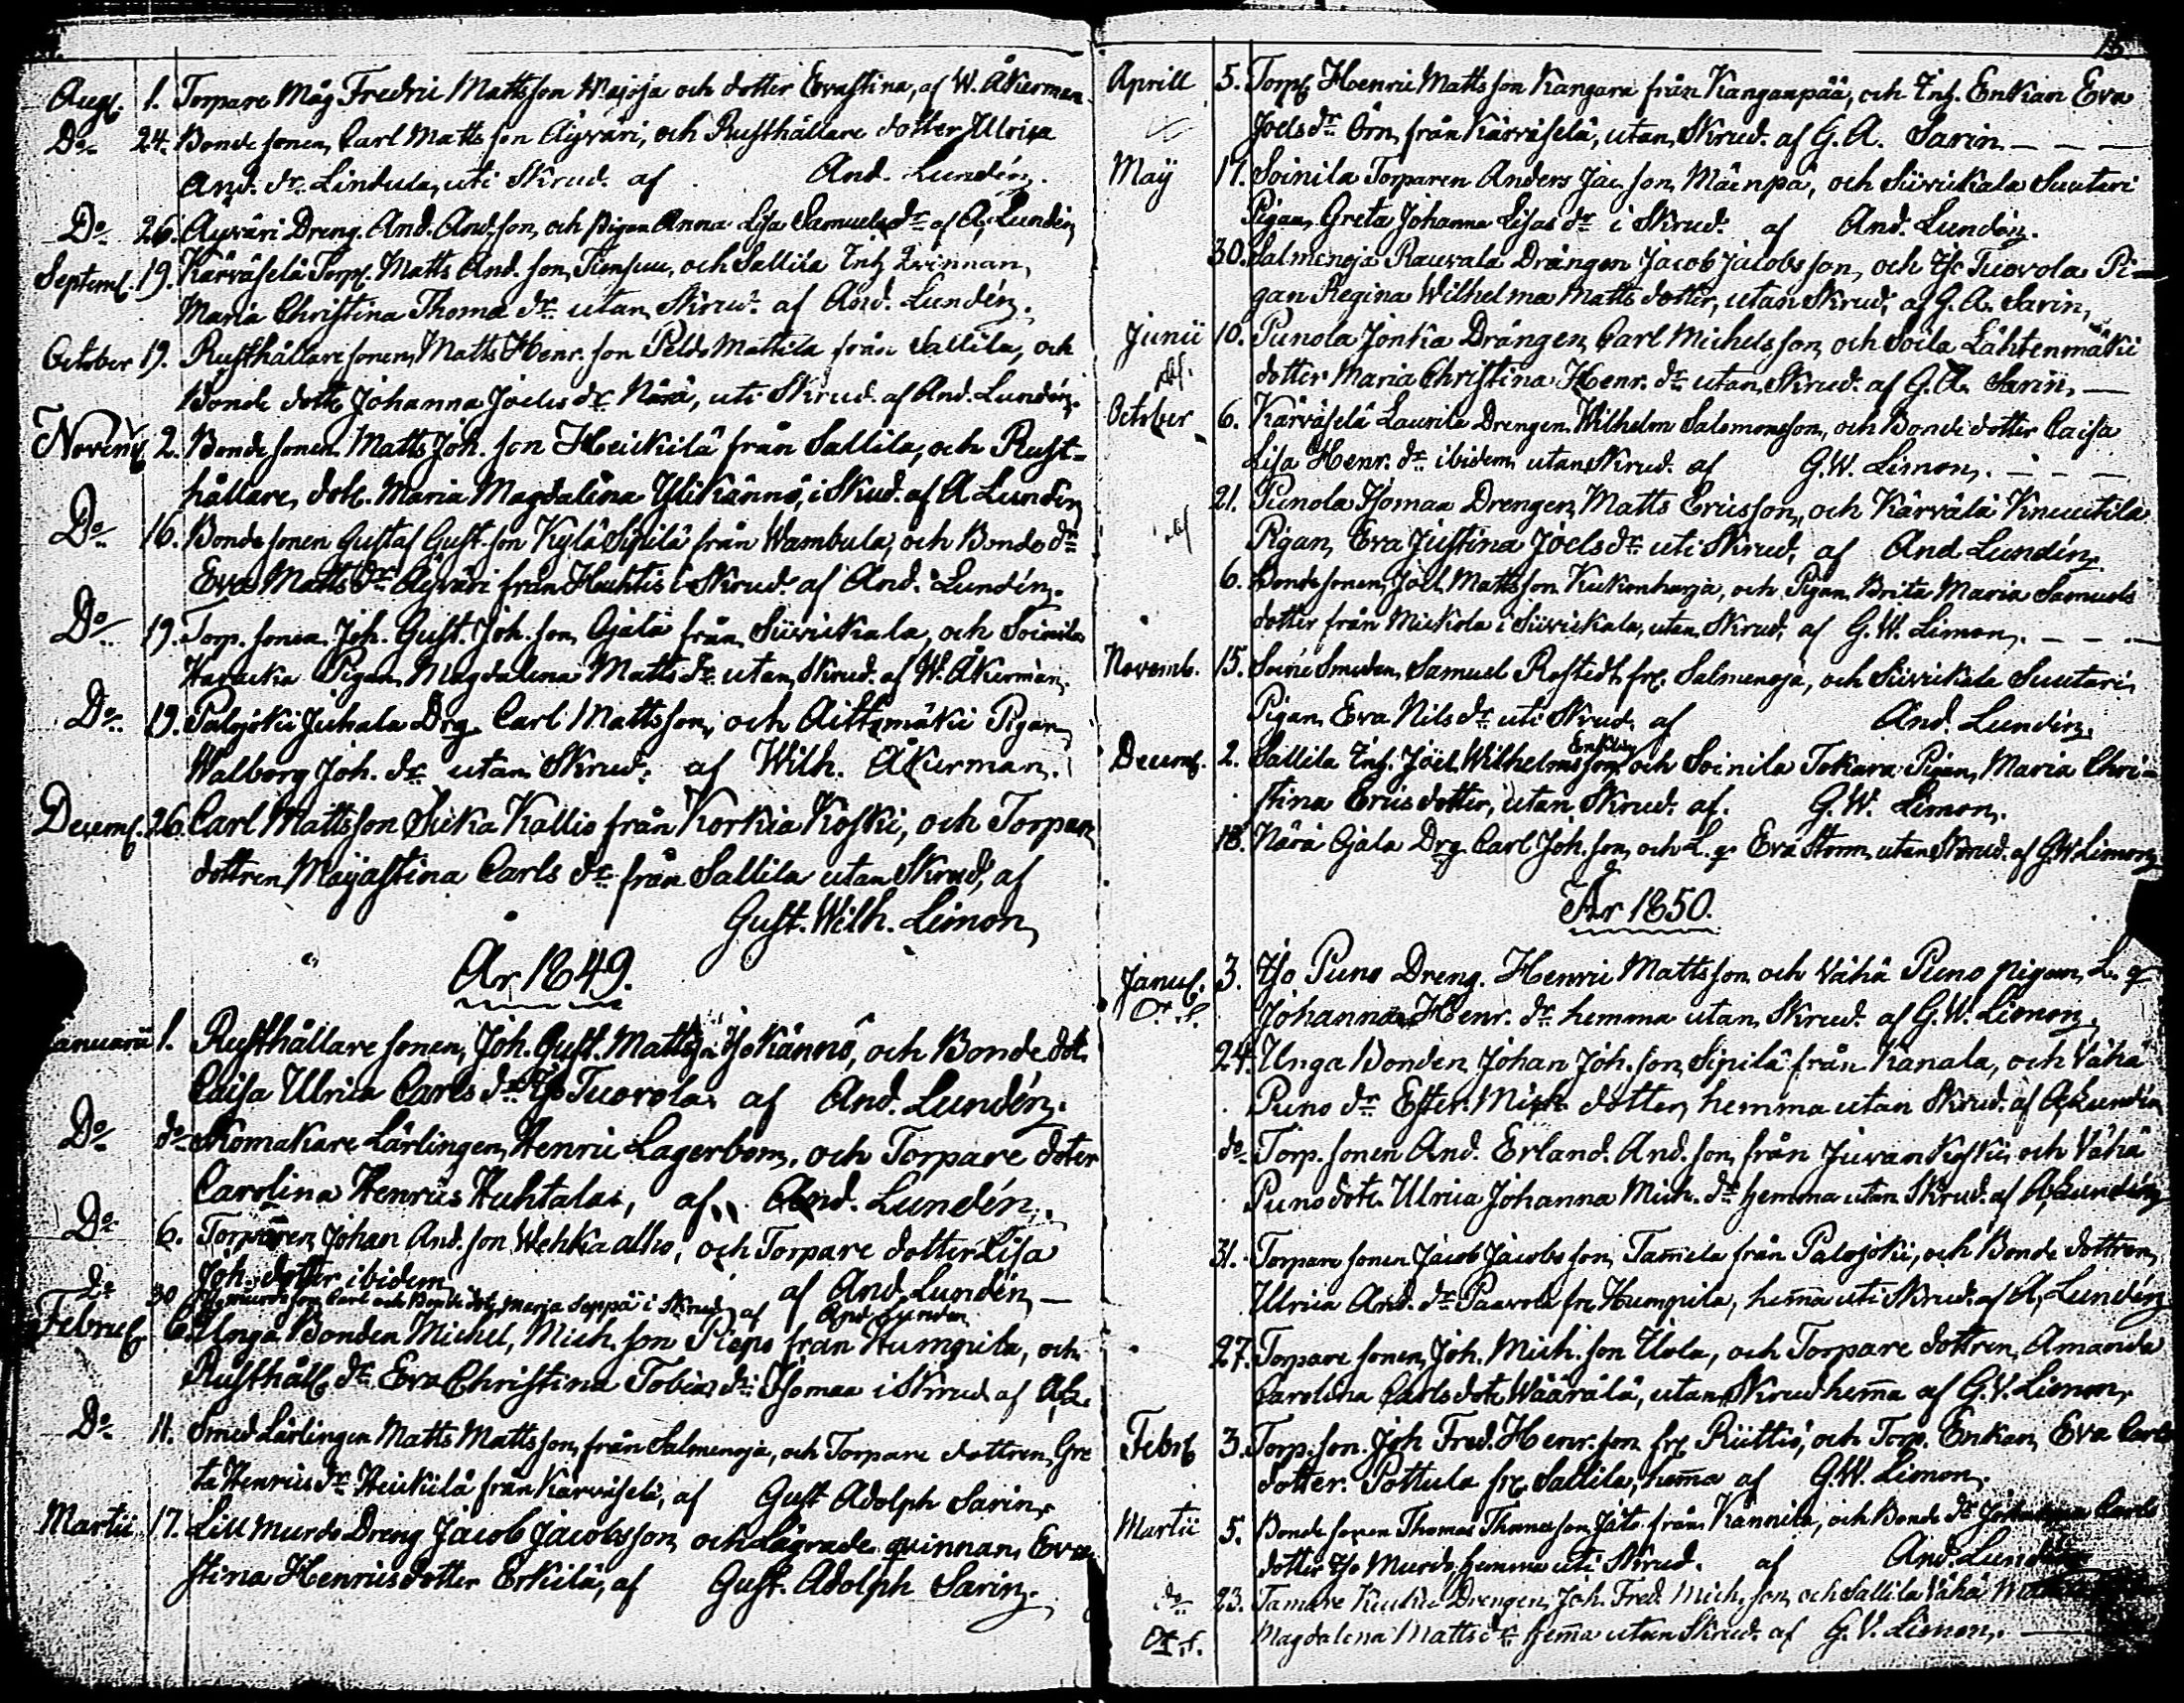 Aug. 1. Torpare Måg Fredric Mattsson Majoja och dotter Evastina, af W. Åkerman
Do 24. Bonde sonen, Carl Matts son Äyväri, och Rusthållare dotter Ulrica
And. dr. Lindula, uti Skrud. af And. Lundén.
Do 26. Äyväri Dreng. And. And. son, och Pigan Anna Lisa Samuels dr af A. Lundén
Septemb. 19. Kärväselä Torp. Matts And. son, och Sallila Inh. Qvinnan,
Maria Christina Thoma dr. utan Skrud. af And. Lundén.
October 19. Rusthållare sonen, Matts Henr. son Peldo Mattila från Sallila, och
Bonde dottr Johanna Joels dr. Närä, uti Skrud. af And. Lundén.
Novemb. 2. Bonde sonen Matts Joh. son Heickilä från Sallila, och Rust-
hållare, dott. Maria Magdalena Ylikännö, i Skud. af A Lundén
Do 16. Bonde sonen Gustaf Gust. son Kylä Sipilä från Wambula, och Bonde dr
Eva Matts dr Äyväri från Huhtis i Skrud. af And. Lundén.
Do 19. Torp. sonen. Joh. Gust. Joh. son Ojala från Siivickala, och Soinila
Pigan Magdalena Matts dr. utan Skrud. af W. Åkerman.
Do 19. Palojoki Juhala Drg. Carl Mattsson, och Aittamäki Pigan
Walborg Joh. dr. utan Skrud. af Wilh. Åkerman.
Decemb. 26. Carl Mattsson Sicka Kallio från Korkia Koski, och Torpare
dottren Mayastina Carls dr. från Sallila utan Skrud, af
Gust. Wilh. Limon
År 1849.
Januarii 1. Rusthållare sonen, Joh. Gust. Matts. Iso Kännö, och Bonde dot.
Caisa Ulrica Carls dr. Iso Tuorola. af And. Lundén.
Do do Skomakare Lärlingen, Henric Lagerbom, och Torpare doter
Carolina Henriis Huhtalas, af And. Lundén.
Do 6. Torparen Johan And. son Wehka allio, och Torpare dotter Lisa
Joh. dotter ibidem af And. Lundén
do 30 Carl och Maria Seppä i Skrud af And. Lunden
Februa. 6. Unga Bonden Michel, Mich. son Piepo från Humpila, och
Rusthåll. dr. Eva Christina Tobias dr. Isomaa i Skrud. af
Do 11. Smed Lärlingen Matts Mattsson, från Salmenoja, och Torpare dottren, Gre
ta Henriis dr. Heickilä från Kärväselä, af Gust Adolph Sarin.
Martii 17. Lill Murdo Dreng Jacob Jacobsson, och Lägrade quinnan, Eva
stina Henriisdotter Erkilä, af Gust. Adolph Sarin.
Aprill 5. Torp. Henric Matts son Kangara från Kangaspää, och Inh. Enkan Eva
Joels dr. Örn, från Kärväselä, utan, Skrud. af G. A. Sarin.
May 17. Soinila Torparen Anders Jac. son, Mäenpä, och Siivickala Suutari
Pigan, Greta Johanna Lisas dr i Skrud. af And. Lundén.
30. Salmenoja Rauvala Drängen Jacob Jacobs son, och Iso Tuovola Pi-
gan Regina Wilhelma Matts dotter, utan Skrud, af G. A. Sarin,
Junii 10. Punola Jonka Drängen Carl Michels son, och Soila Lähtenmäki
dotter Maria Christina Henr. dr. utan, Skrud. af G. A. Sarin,
October 6. Kärväselä Laurila Drengen Wilhelm Salomonsson, och Bonde dotter Caisa
Lisa Henr. dr. ibidem utan Skrud. af G. W. Limon.
21. Punola Isomaa Drengen, Matts Ericsson, och Kärvälä Knuutila
Pigan, Eva Justina Joels dr. uti Skrud, af And Lundén.
6. Bonde sonen, Joel Mattsson Kukonharja, och Pigan Brita Maria Samuels
dotter från Mickola i Siivickala, utan, Skrud, af G. W. Limon.
Novemb. 15. Smeden, Samuel Rostedt fr. Salmenoja, och Siivickala Suutari
Pigan, Eva Nils dr. uti Skrud. af And. Lundén.
Decemb. 2. Sallila Inh. Joel Wilhelmsson Enkling och Soinila Tokara Pigan, Maria Chri-
stina Ericsdotter, utan Skrud. af. G. W. Limon.
18. Närä Ojala Drg. Carl Joh. son, och L. q. Eva Storm, utan Skrud. af G. W. Limon
År 1850.
Janua. 3. Iso Puno Dreng. Henric Mattsson och Vähä Puno pigan, L. q
Johanna Henr. dr. hemma utan, Skrud. af G. W. Limon.
24. Unga Bonden Johan Joh. son, Sipilä från Kanala, och Vähä
Puno dr Ester Mich. dotter, hemma utan Skrud. af A. Lundén
do Torp. sonen And. Erland. And. son, från Juvankoski, och Vähä
Puno dotr. Ulrica Johanna Mich. dr hemma utan Skrud. af A. Lundén
31. Torpare sonen Jacob Jacobs son, Tam̄ela från Palojoki, och Bonde dottren,
Ulrica And. dr. Paavola fr. Humpila, hem̄a uti Skrud. af A. Lundén
27. Torpare sonen, Joh. Mich. son Uola, och Torpare dottren, Amanda
Carolina Carls dotr Wäärälä, utan, Skrud hem̄a af G. V. Limon,
Febr. 3. Torp. son. Joh Fred. Henr. son fr. Riittiö, och Torp. Enkan, Eva Carls
dotter. Pottula fr. Sallila, hem̄a af G. W. Limon.
Martii 5. Bonde sonen Thomas Thomasson, från Kännilä, och Bonde dr Carls
dotter Iso Murdo, hemma uti Skrud. af And. Lundén
do 23. Drengen, Joh. Fred. Mich. son, och Sallila Vähä
Magdalena Matts dr. hem̄a utan Skrud. af G. V. Limon.